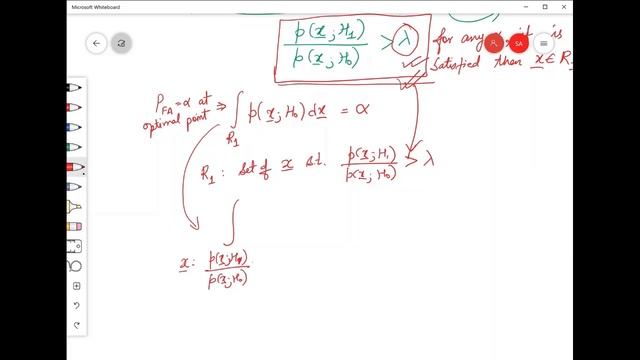 Microsoft Whiteboard
p(x; H₁) / p(x; H₀) > λ
for any x, it is
satisfied then x ∈ R
P_FA = α at optimal point ⇒ ∫_R₁ p(x; H₀) dx = α
R₁ : set of x s.t. p(x; H₁) / p(x; H₀) > λ
∫
x : p(x; H₁) / p(x; H₀)